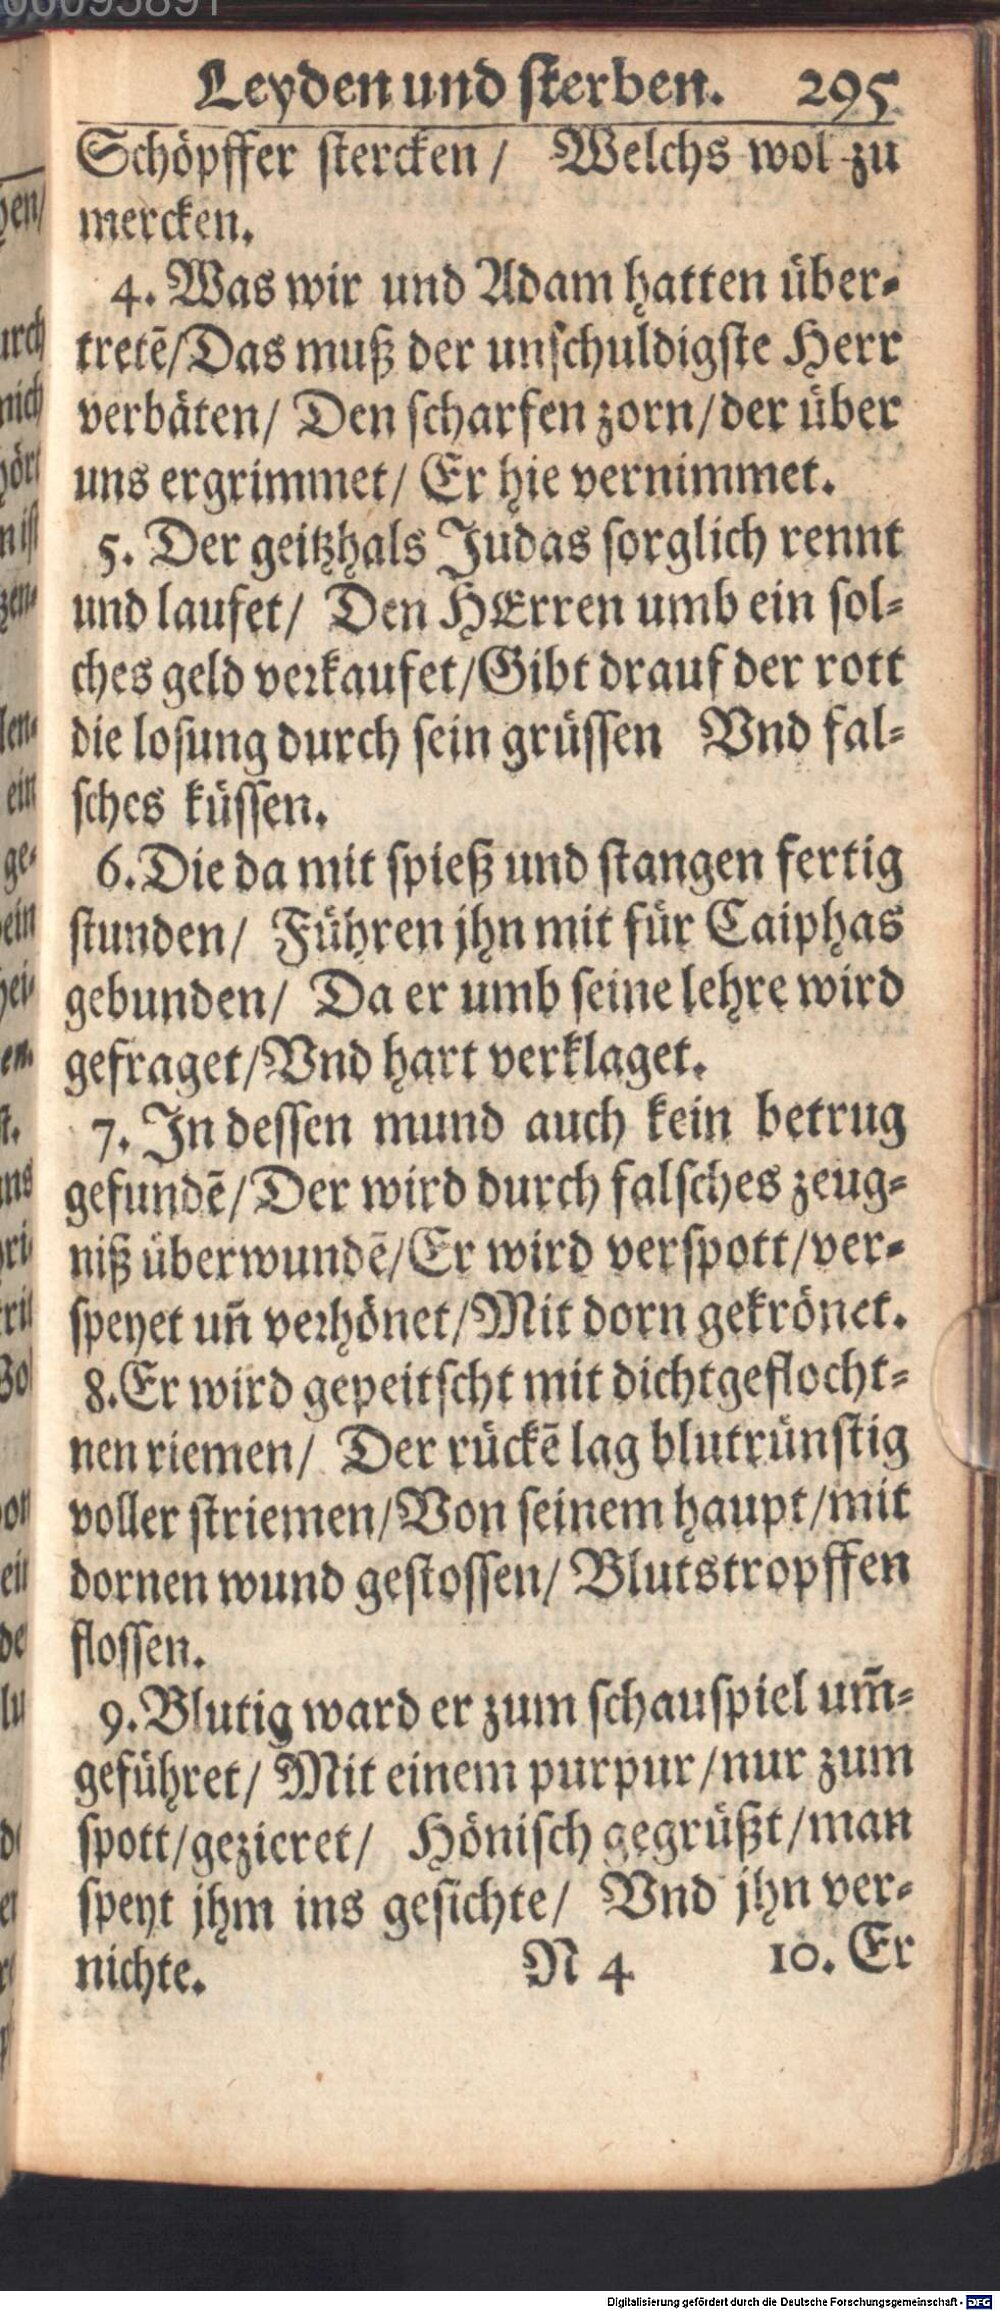 Leyden und sterben. 295
Schöpffer stercken / Welchs wol zu
mercken.
4. Was wir und Adam hatten über-
tretē/Das muß der unschuldigste Herr
verbäten/ Den scharfen zorn/der über
uns ergrimmet/ Er hie vernimmet.
5. Der geitzhals Judas sorglich rennt
und laufet/ Den HErren umb ein sol-
ches geld verkaufet/Gibt drauf der rott
die losung durch sein grüssen Vnd fal-
sches küssen.
6.Die da mit spieß und stangen fertig
stunden/ Führen jhn mit für Caiphas
gebunden/ Da er umb seine lehre wird
gefraget/Vnd hart verklaget.
7. In dessen mund auch kein betrug
gefundē/Der wird durch falsches zeug-
niß überwundē/Er wird verspott/ver-
speyet uñ verhönet/Mit dorn gekrönet.
8.Er wird gepeitscht mit dichtgeflocht-
nen riemen/ Der rückē lag blutrünstig
voller striemen/Von seinem haupt/mit
dornen wund gestossen/ Blutstropffen
flossen.
9.Blutig ward er zum schauspiel um̄-
geführet/ Mit einem purpur/nur zum
spott/gezieret/ Hönisch gegrüßt/man
speyt jhm ins gesichte/ Vnd jhn ver-
nichte. N 4 10. Er
Digitalisierung gefördert durch die Deutsche Forschungsgemeinschaft - DFG